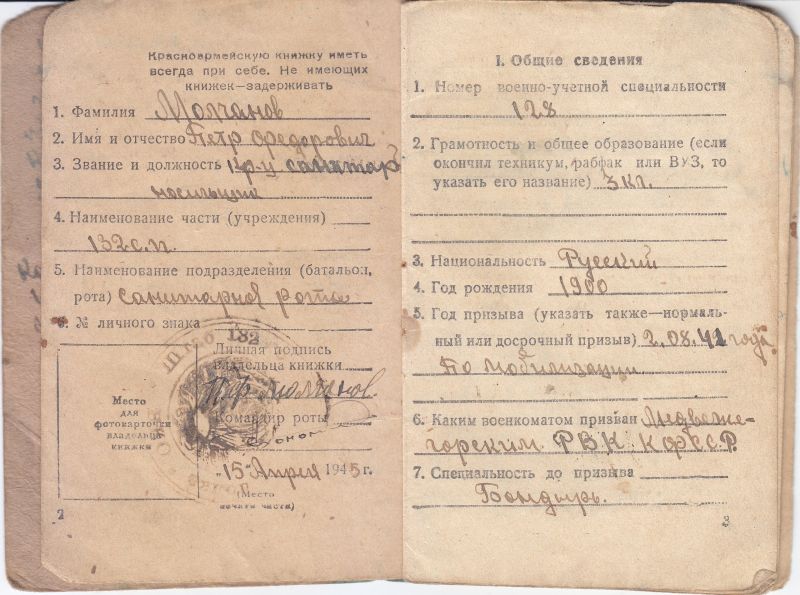 Красноармейскую книжку иметь
всегда при себе. Не имеющих
книжек—задерживать
1. Фамилия Молчанов
2. Имя и отчество Пётр Федорович
3. Звание и должность кр-ц санитар
носильщик
4. Наименование части (учреждения)
132 с.п.
5. Наименование подразделения (батальон,
рота) санитарная рота
6. № личного знака
132
Личная подпись
владельца книжки
Молчанов.
Командир роты
"15" Апреля 1945 г.
(Место
печати части)
Место
для
фотокарточки
владельца
книжки
2
I. Общие сведения
1. Номер военно-учетной специальности
128
2. Грамотность и общее образование (если
окончил техникум, рабфак или ВУЗ, то
указать его название) 3 кл.
3. Национальность Русский
4. Год рождения 1900
5. Год призыва (указать также—нормаль-
ный или досрочный призыв) 2.08.41 года
По мобилизации
6. Каким военкоматом призван Медвеже-
горским РВК КФССР
7. Специальность до призыва
Бондырь.
3